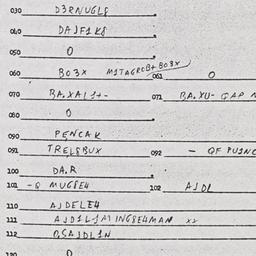 030 D3RNUGL8
040 DAJF1K8
050 0
060 BO3X M1TAGROB+BO3X 061 0
070 BA.XA11+- 071 BA.XU- GAP
080 0
090 PENCAK
091 TREL8BUX 092 - OF
100 DA.R
101 -8 MUG8E4 102 AJDL
110 AJDELE4
111 AJD1L-JMING8E4MAN x2
112 BSAJDL1N
120 0